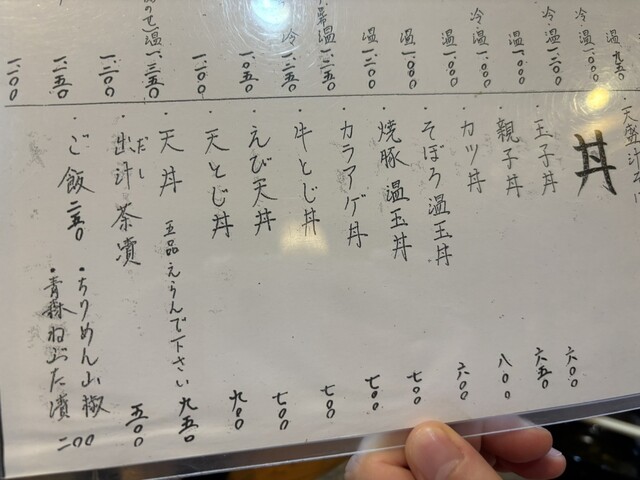 温 九五〇
冷温 一、〇〇〇
冷温 一、〇〇〇
温 一、〇〇〇
冷温 一、〇〇〇
温 一、〇〇〇
温 一、〇〇〇
温 一、二〇〇
温 一、二五〇
冷 一、二五〇
一、〇五〇
一、一〇〇
のせ)温 一、三五〇
一、二〇〇
一、二五〇
一、一〇〇
・天盛汁そば
丼
・玉子丼 六〇〇
・親子丼 六五〇
・カツ丼 八〇〇
・そぼろ温玉丼 六〇〇
・焼豚温玉丼 七〇〇
・カラアゲ丼 七〇〇
・牛とじ丼 七〇〇
・えび天丼 七〇〇
・天とじ丼 九〇〇
・天丼 五品えらんで下さい 九五〇
・出汁茶漬 五〇〇
だし
・ご飯 二五〇
・ちりめん山椒
・青森ねぶた漬 二〇〇